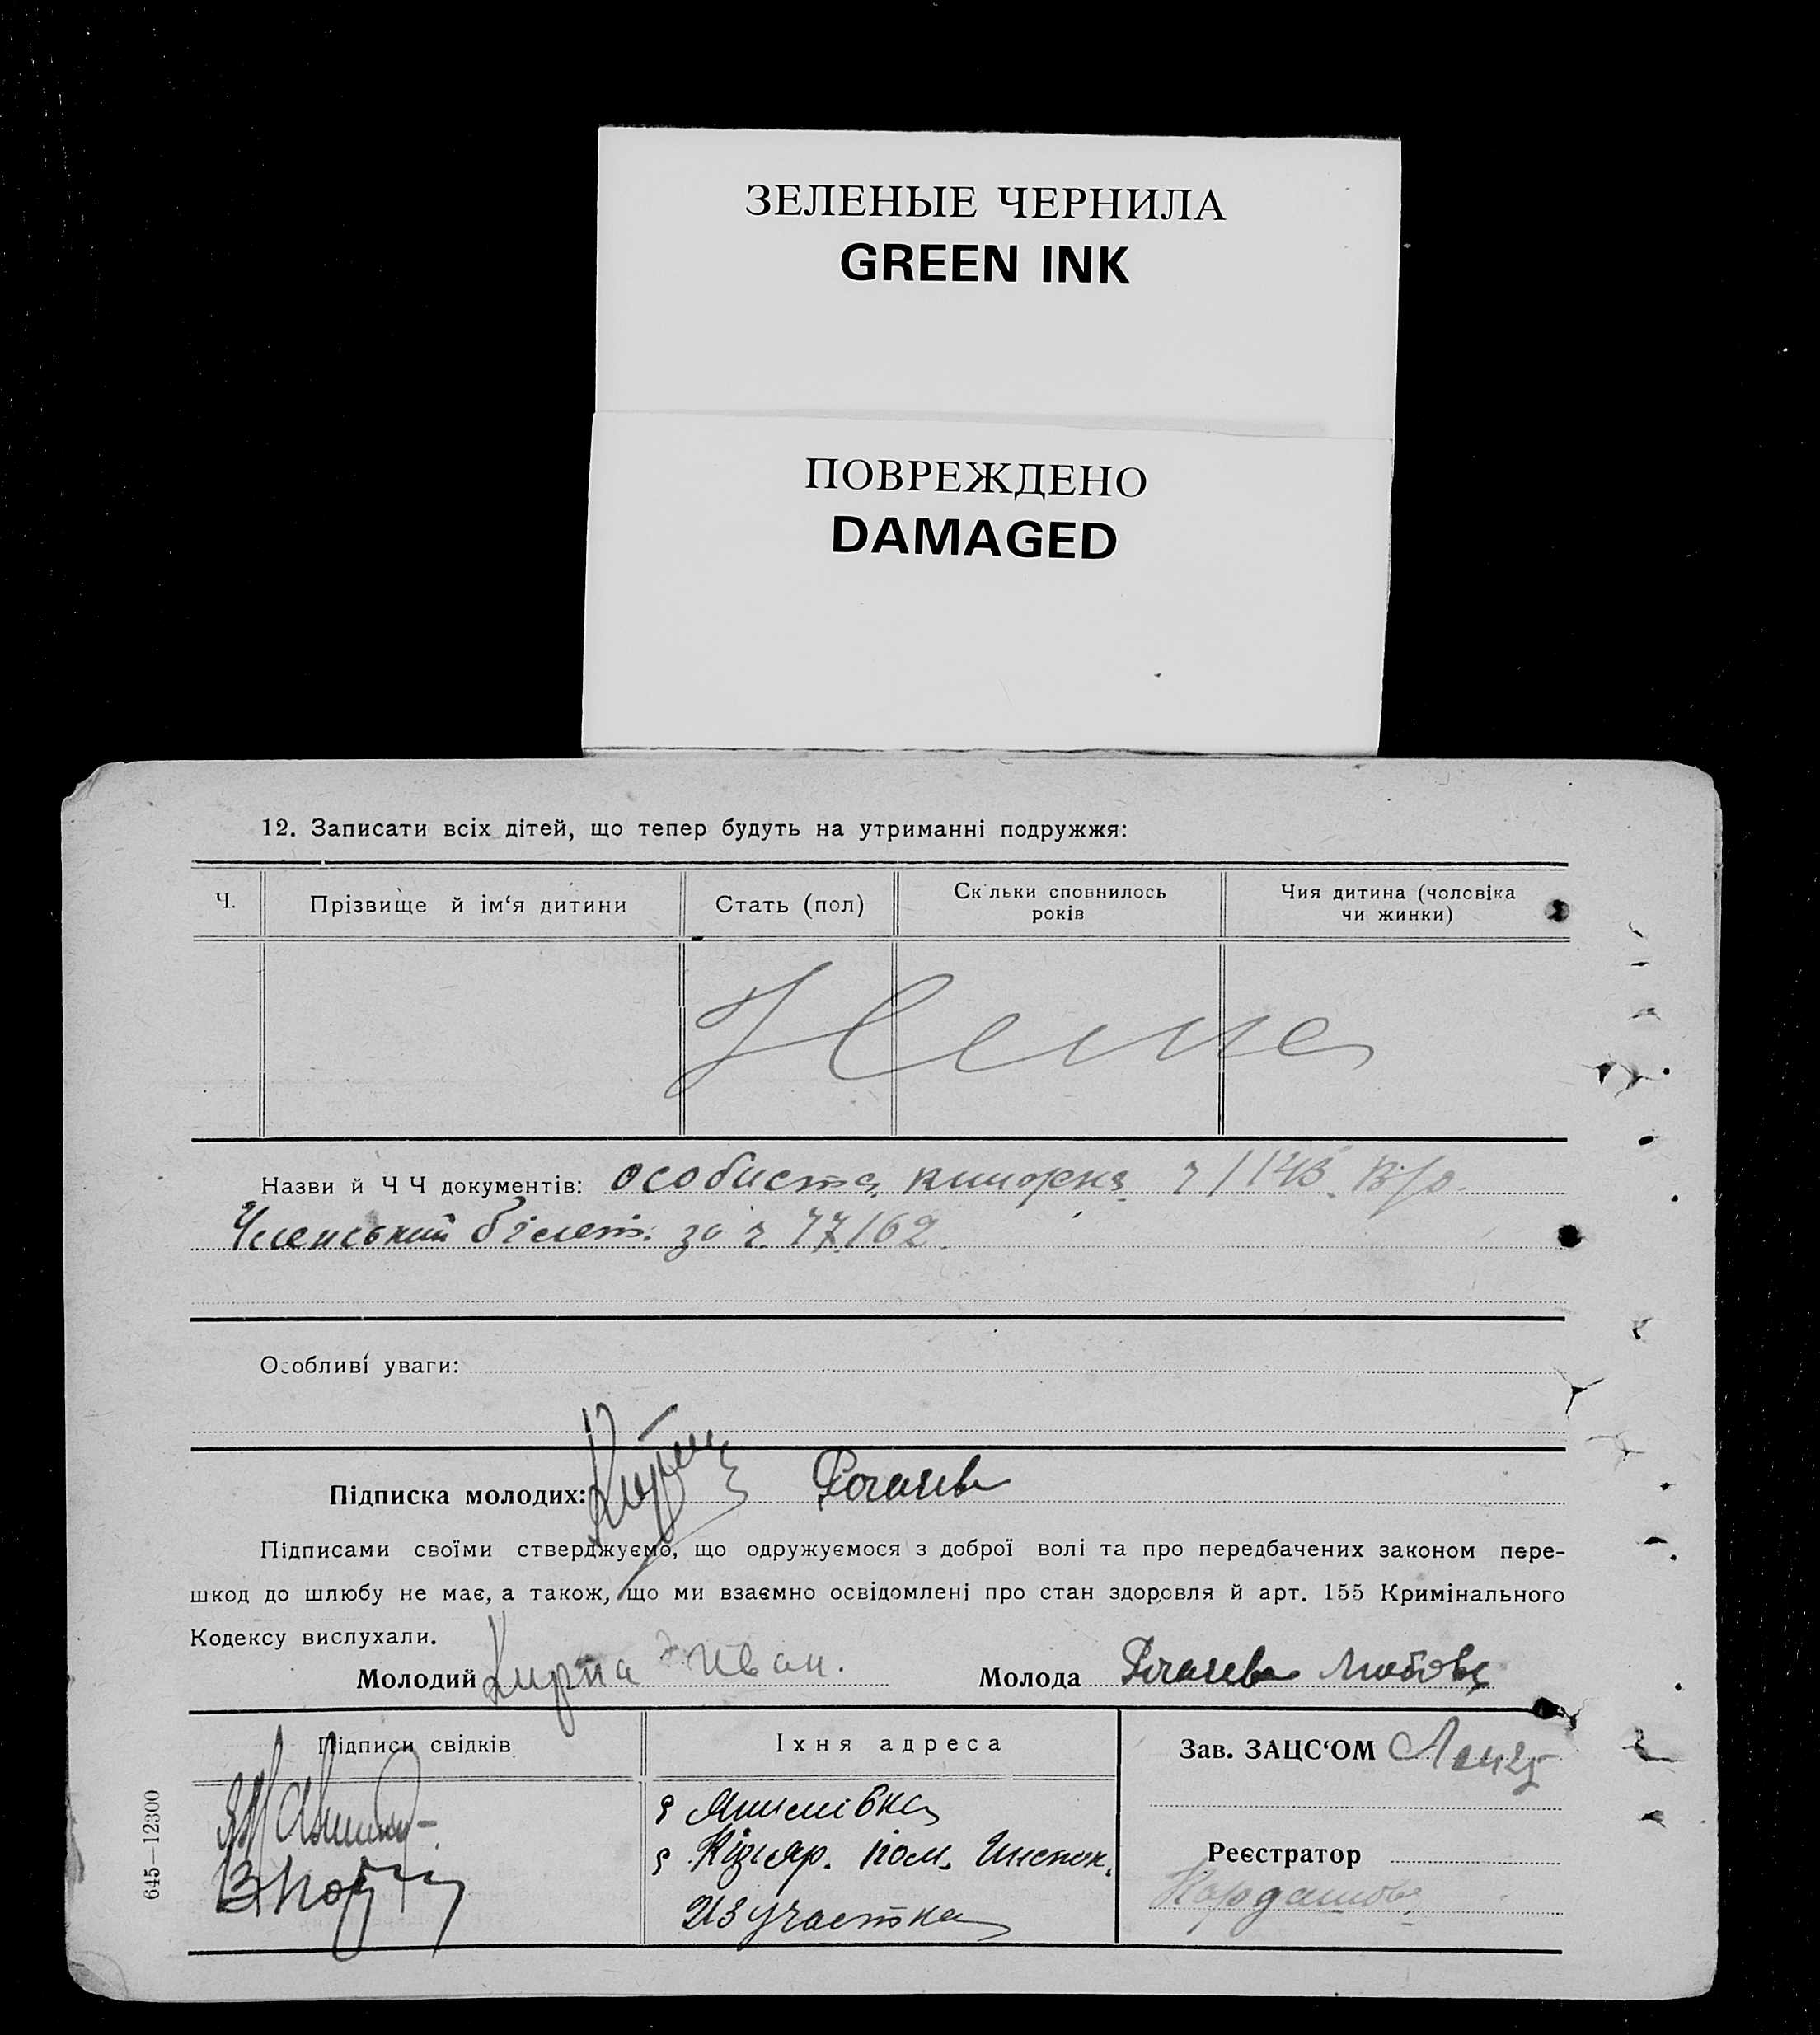 ЗЕЛЕНЫЕ ЧЕРНИЛА
GREEN INK
ПОВРЕЖДЕНО
DAMAGED
12. Записати всіх дітей, що тепер будуть на утриманні подружжя:
Ч. Прізвище й ім‘я дитини Стать (пол) Скільки сповнилось років Чия дитина (чоловіка чи жинки)
Нема
Назви й Ч Ч документів: особиста книжка ч 1145
Членський білет за ч. 77/62
Особливі уваги:
Підписка молодих: Кирпа Рогачева
Підписами своїми стверджуємо, що одружуємося з доброї волі та про передбачених законом пере-
шкод до шлюбу не має, а також, що ми взаємно освідомлені про стан здоровля й арт. 155 Кримінального
Кодексу вислухали.
Молодий Кирпа Иван. Молода Любовь
Підписи свідків Їхня адреса Зав. ЗАЦС‘ОМ
пом.
Реєстратор
участка
645—12300